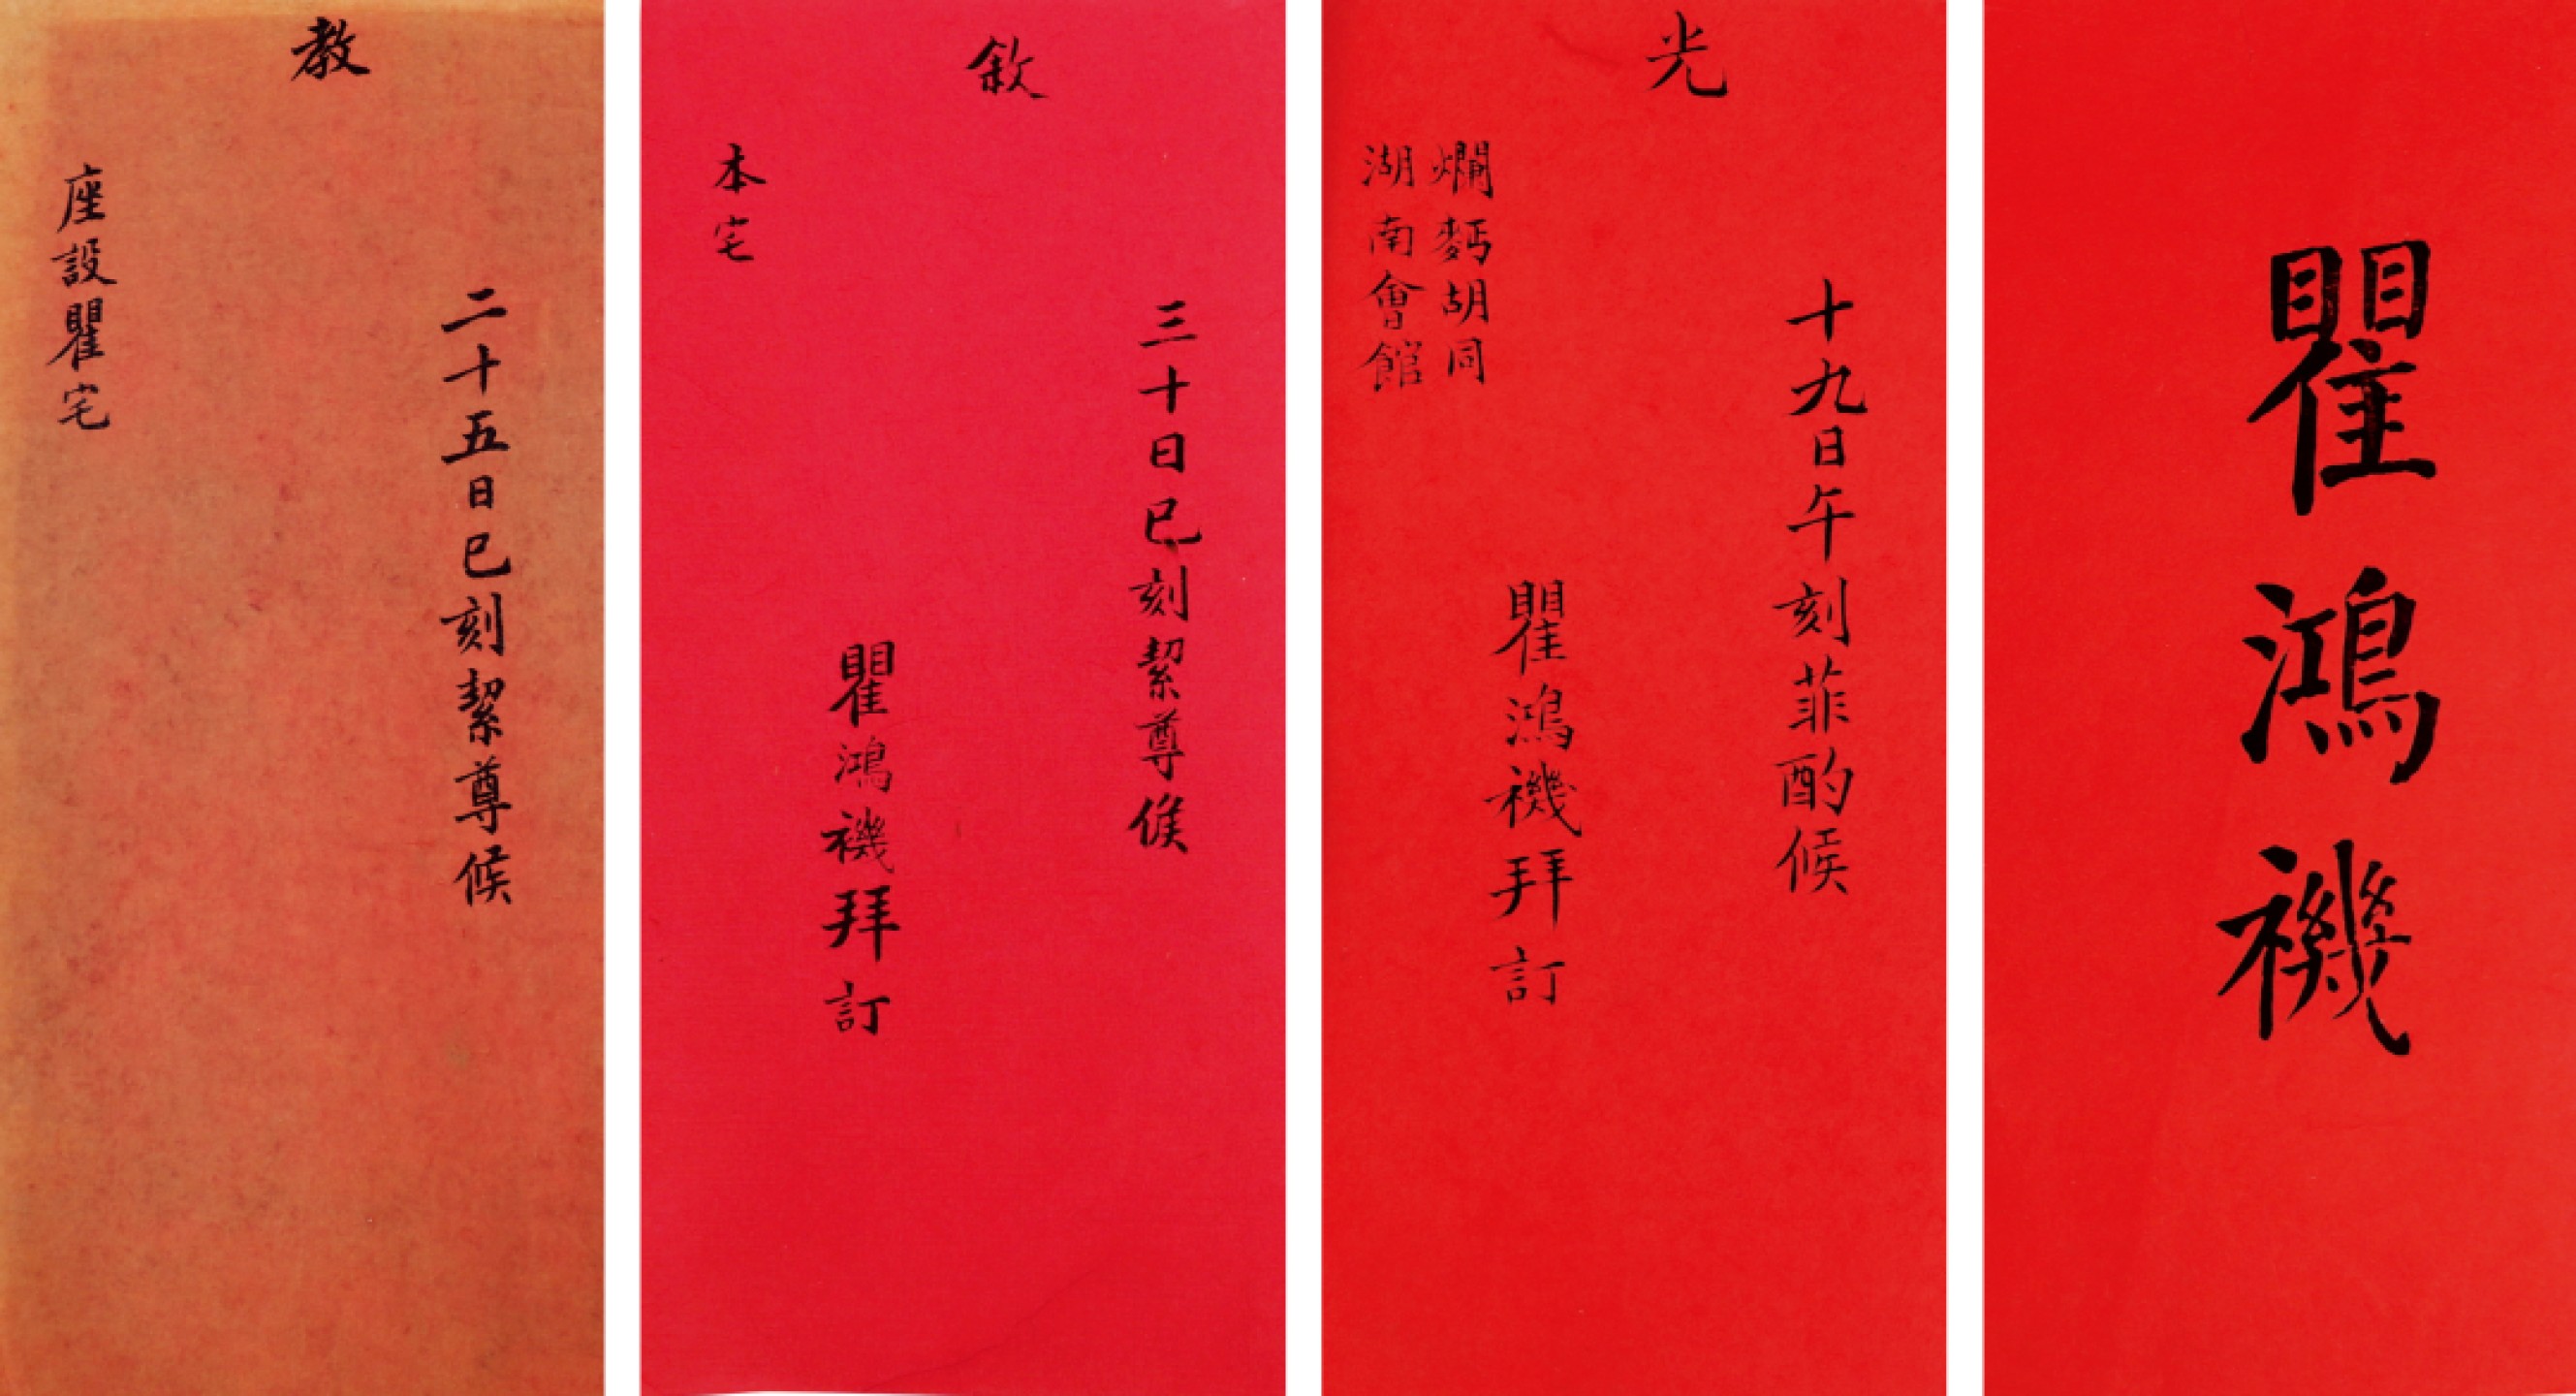 瞿鴻禨
十九日午刻菲酌候
光
瞿鴻禨拜訂
爛麪胡同
湖南會館
三十日巳刻絜尊候
敘
瞿鴻禨拜訂
本宅
二十五日巳刻絜尊候
教
座設瞿宅